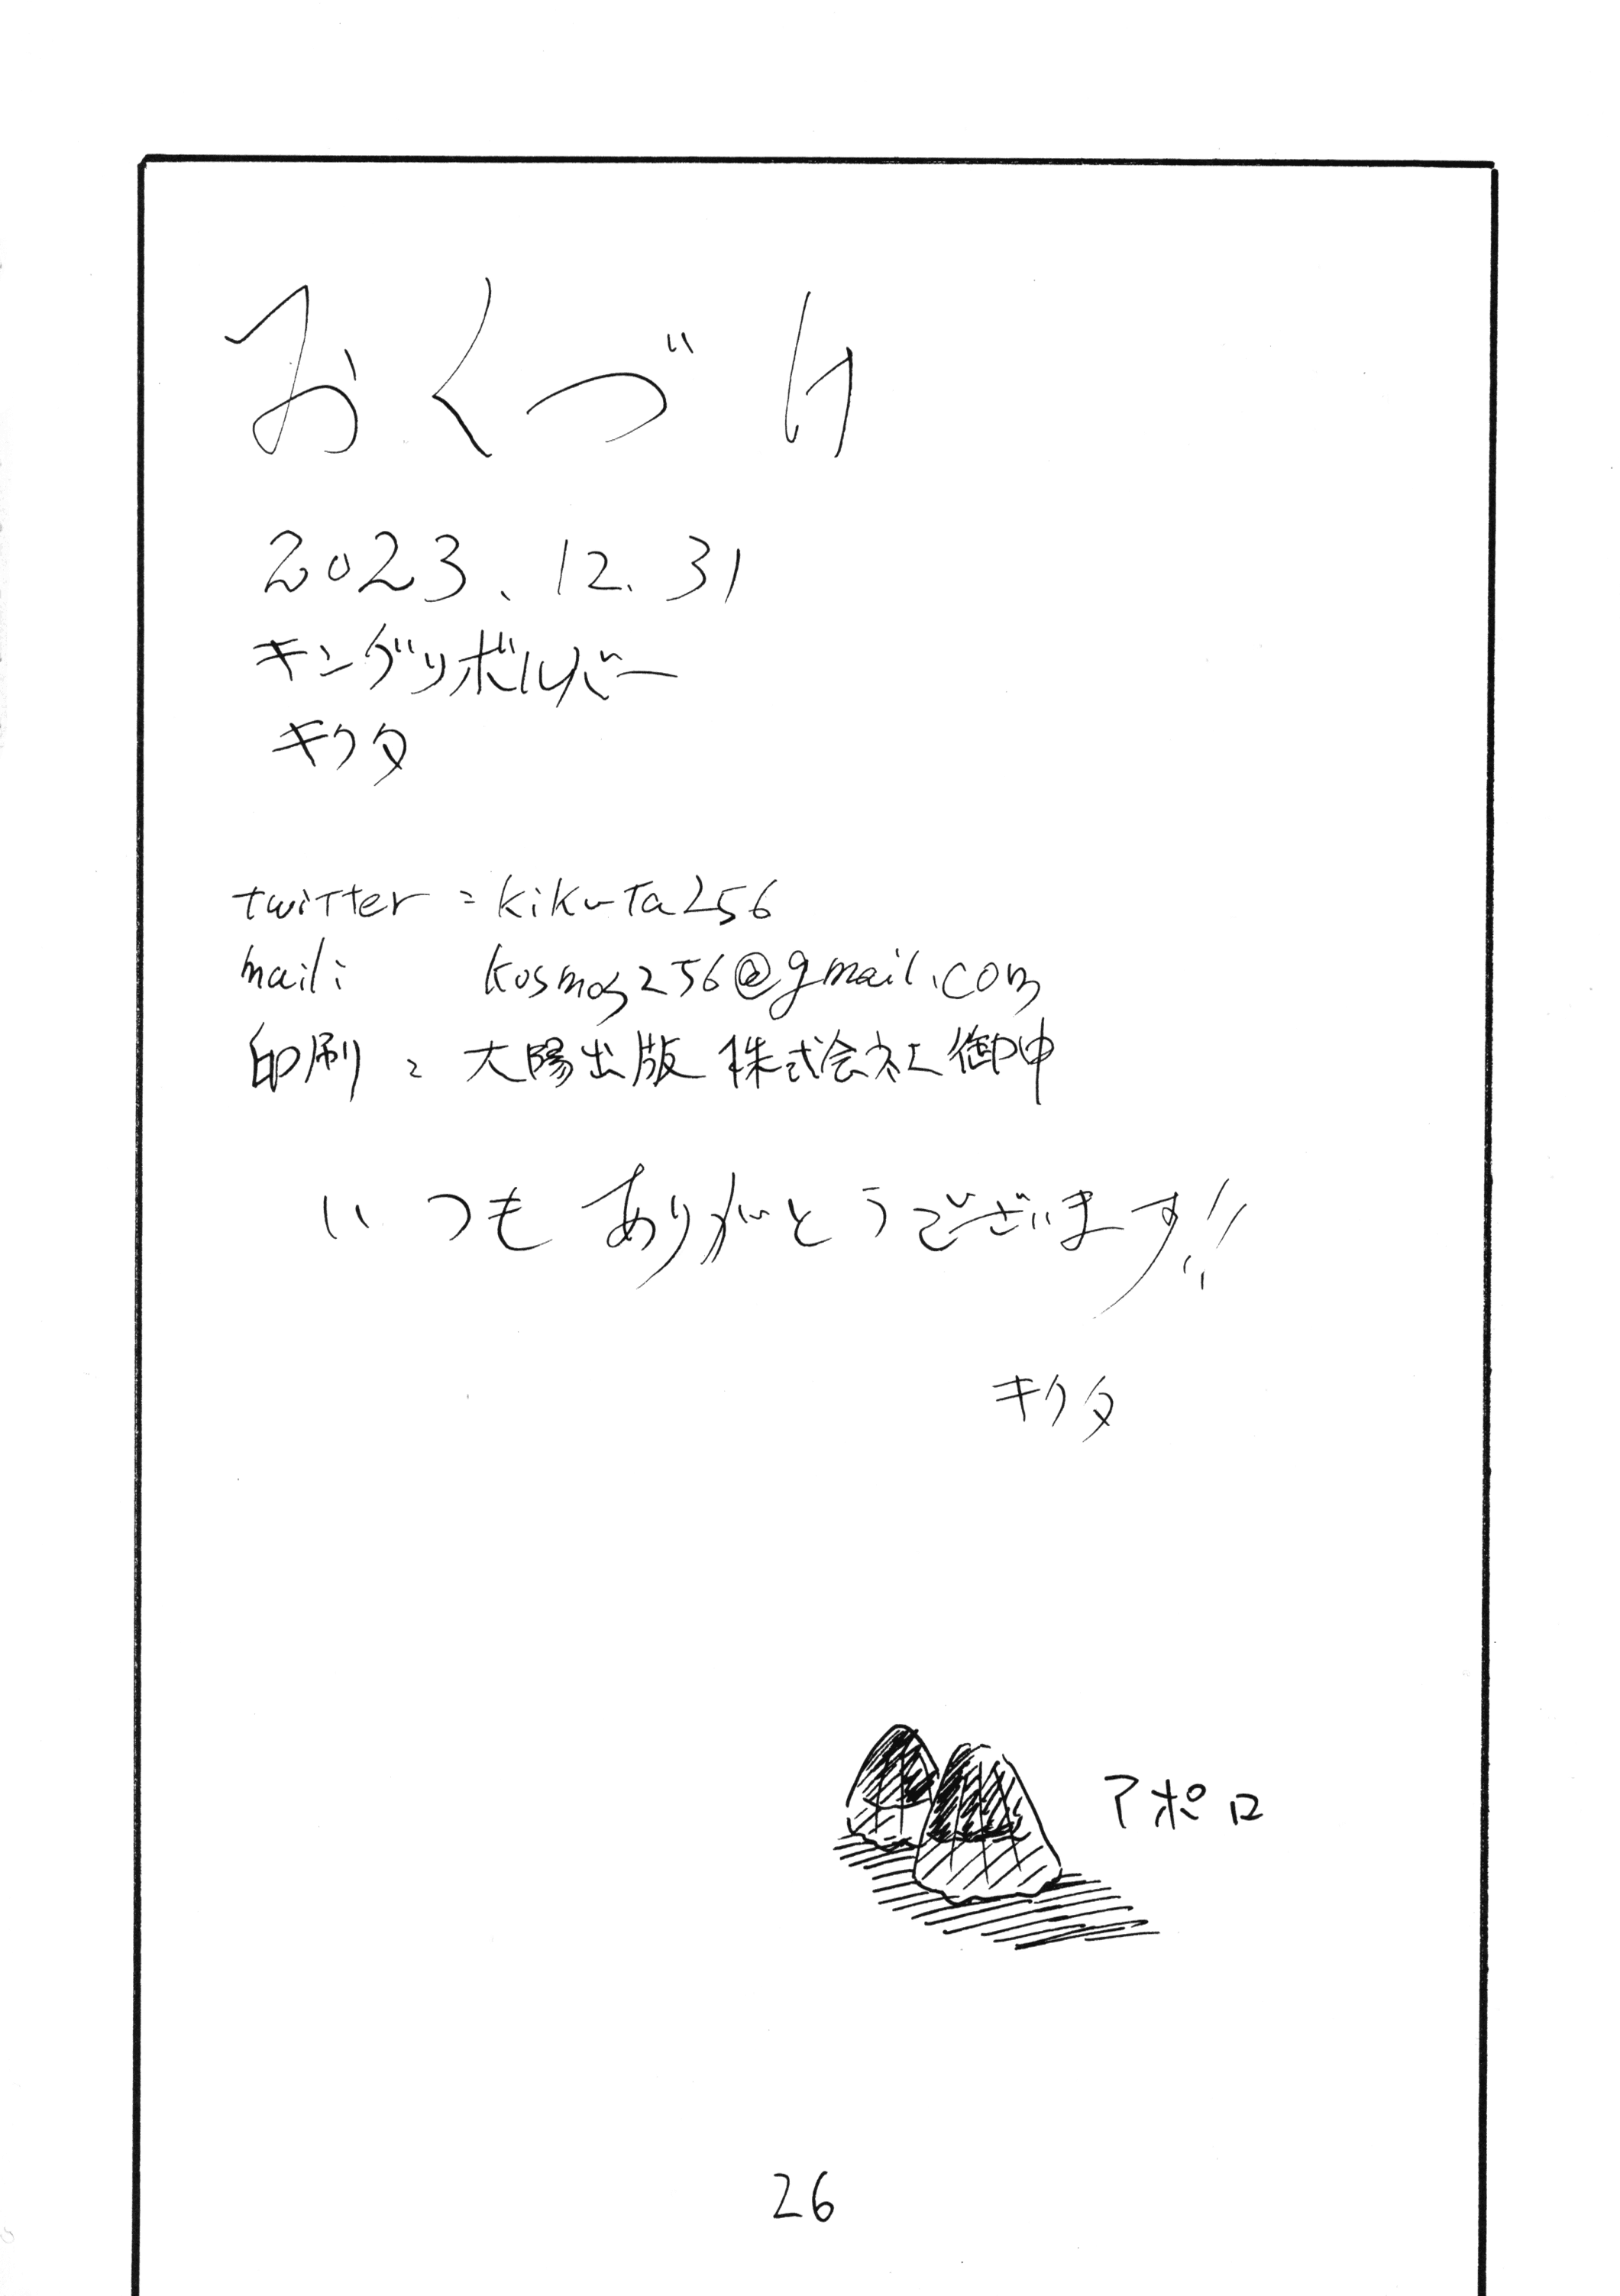 おくづけ
2023.12.31
キングリボルバー
キクタ
twitter : kikuta256
mail: kosmos256@gmail.com
印刷 : 大陽出版 株式会社 御中
いつもありがとうございます!!
キクタ
アポロ
26